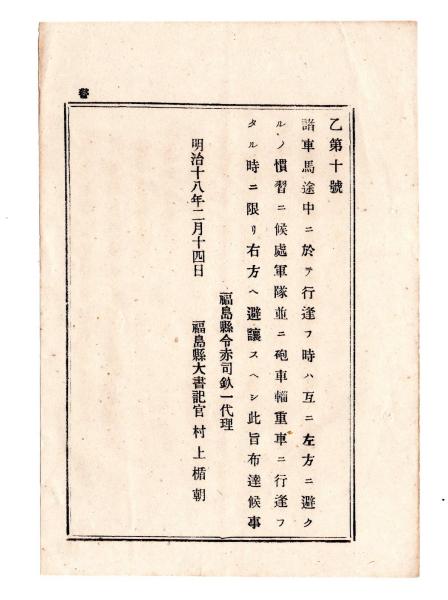 乙第十號
諸車馬途中ニ於テ行逢フ時ハ互ニ左方ニ避ク
ルノ慣習ニ候處軍隊並ニ砲車輜重車ニ行逢フ
タル時ニ限リ右方ヘ避讓スヘシ此旨布達候事
福島縣令赤司欽一代理
明治十八年二月十四日
福島縣大書記官村上楯朝